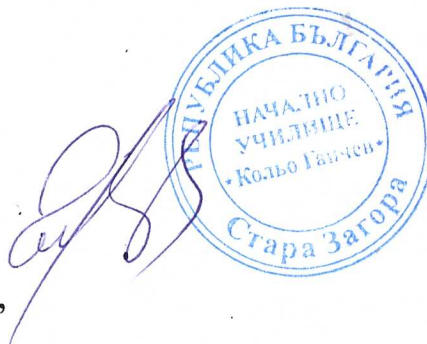 РЕПУБЛИКА БЪЛГАРИЯ
НАЧАЛНО
УЧИЛИЩЕ
• Кольо Ганчев •
Стара Загора